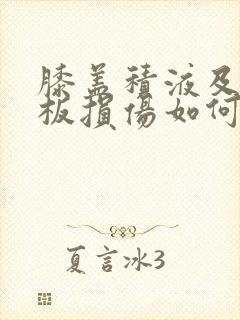 膝盖積液及
板損傷如何
夏言冰3